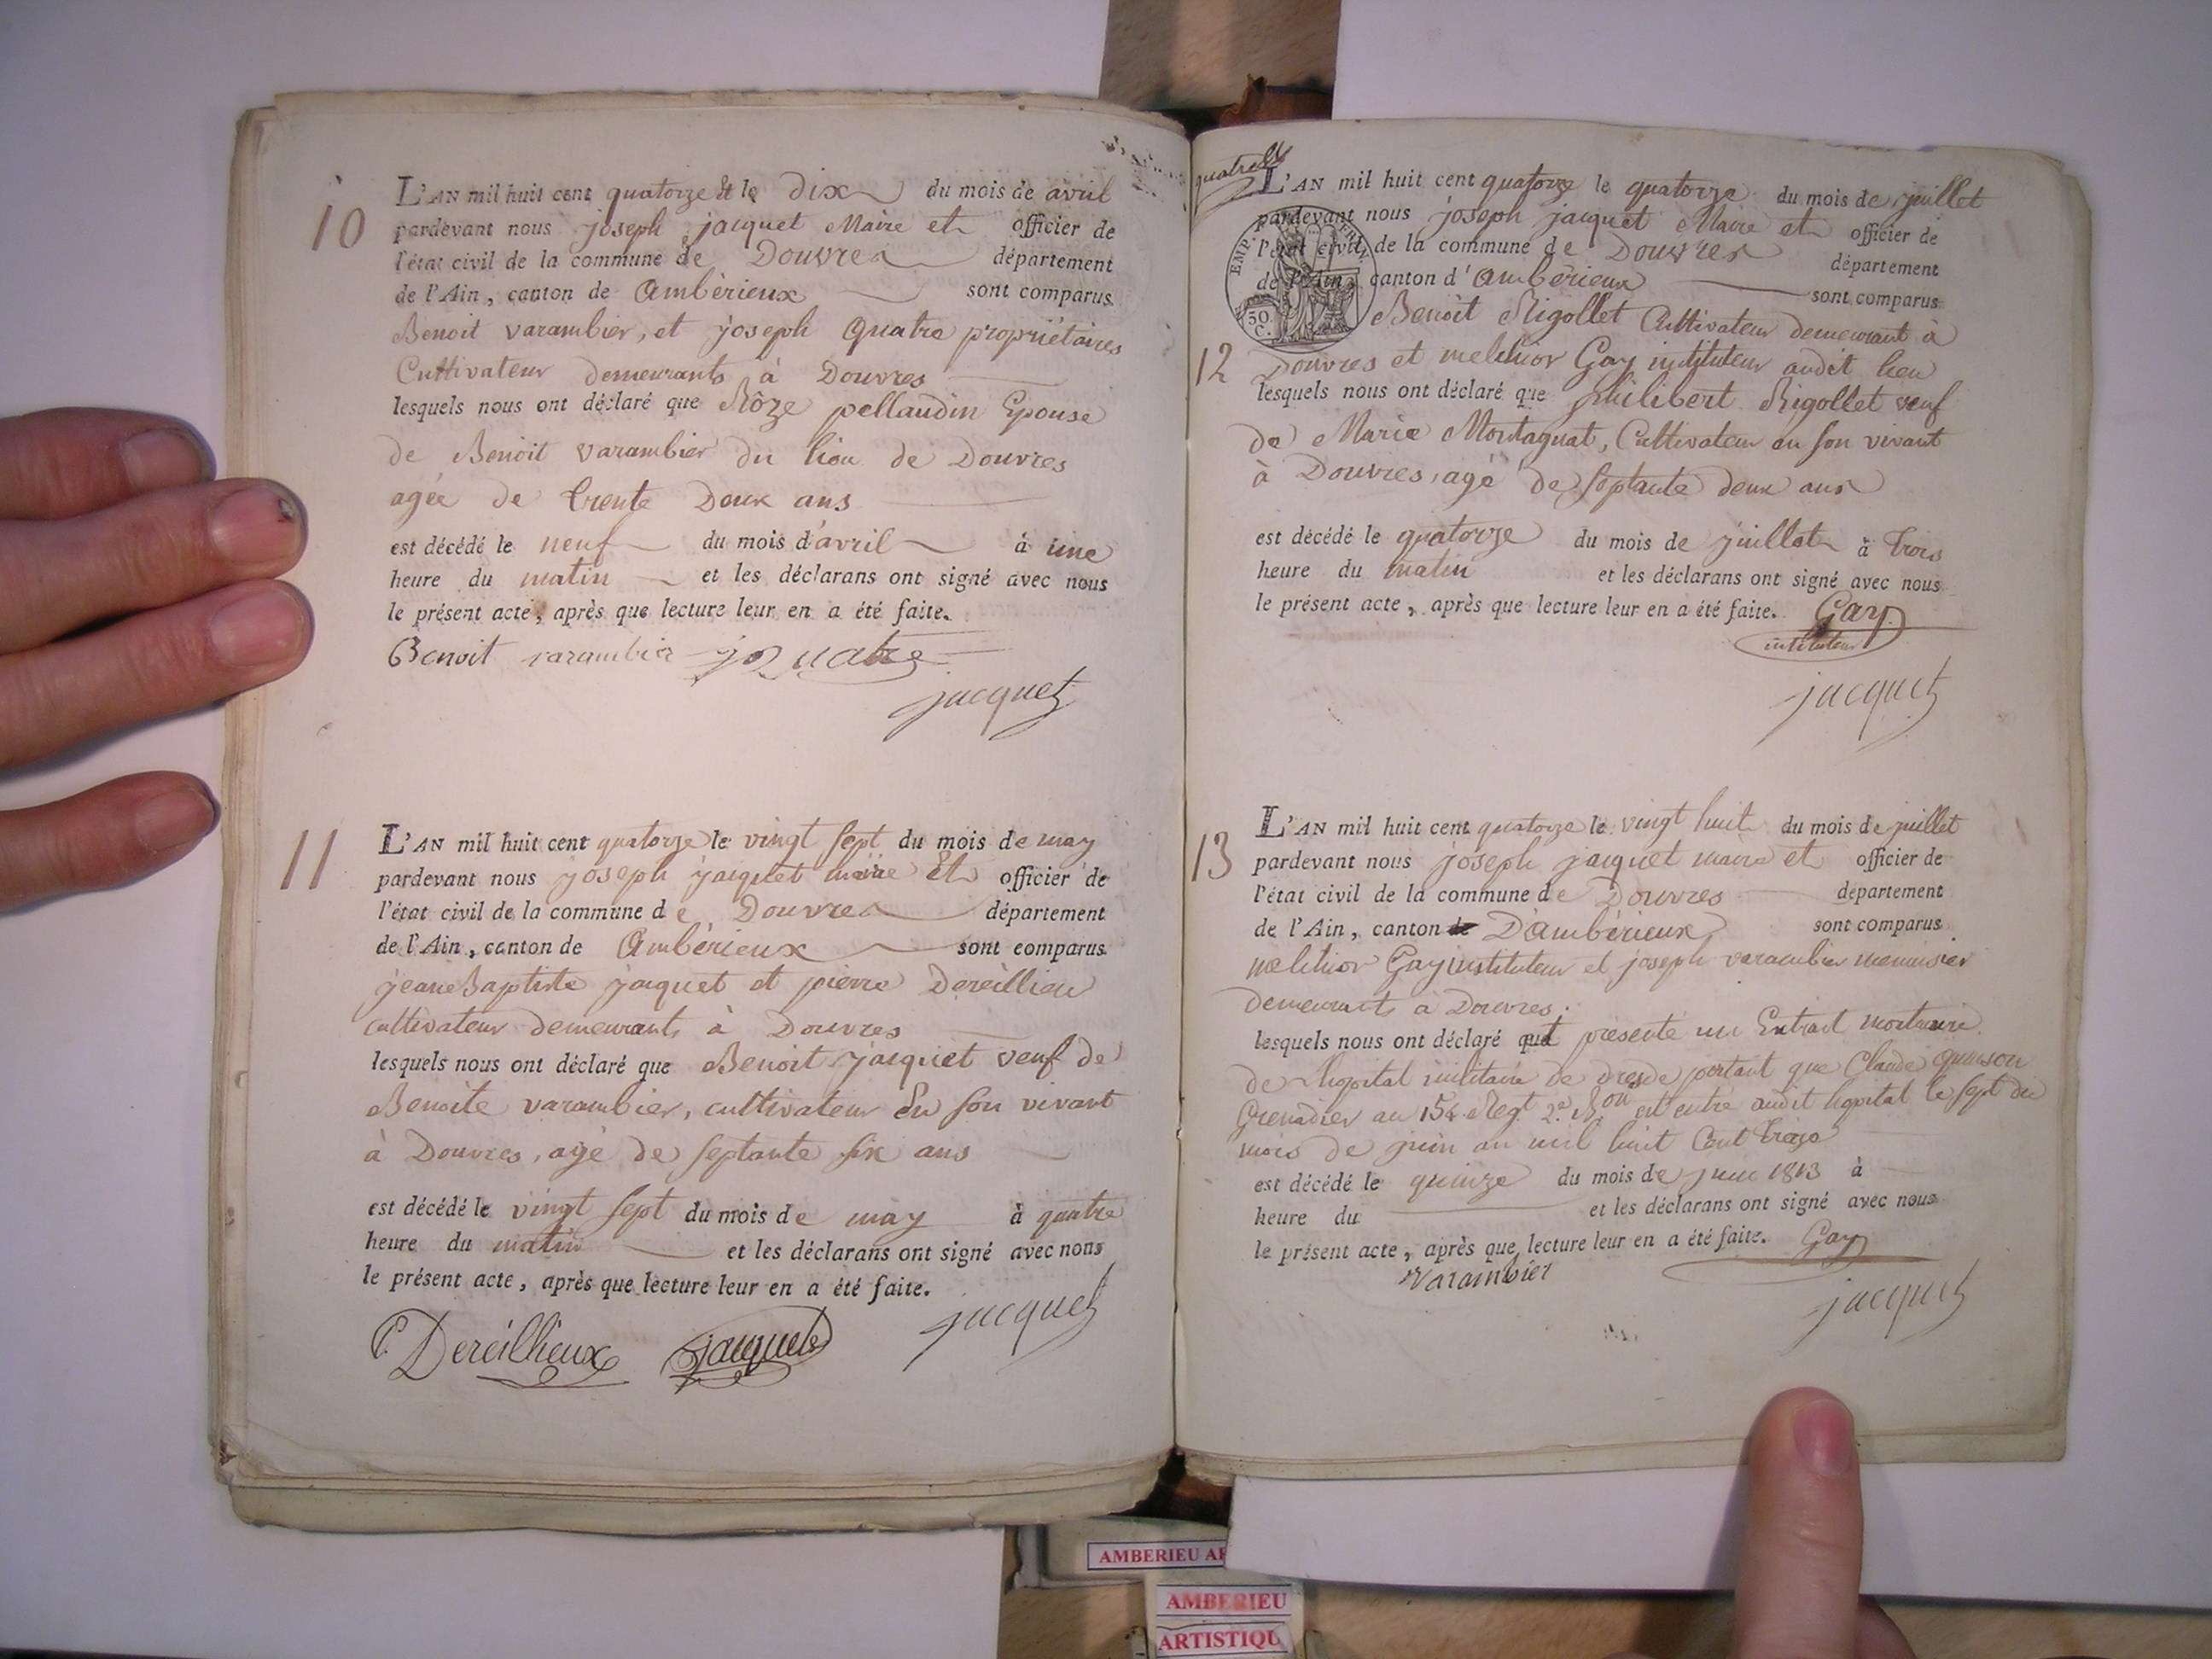 10
L'AN mil huit cent quatorze & le dix du mois de avril
pardevant nous joseph jacquet Maire et officier de
l'état civil de la commune de Douvres département
de l'Ain, canton de Ambèrieux sont comparus
Benoit varambier, et joseph Quatre propriétaires
Cultivateur demeurants à Douvres
lesquels nous ont déclaré que Rôze pellaudin Epouse
de Benoit varambier du lieu de Douvres
agée de trente Deux ans
est décédé le neuf du mois d'avril à une
heure du matin et les déclarans ont signé avec nous
le présent acte, après que lecture leur en a été faite.
Benoit varambier jQuatre
jacquet
11
L'AN mil huit cent quatorze le vingt sept du mois de may
pardevant nous joseph jacquet maire Et officier de
l'état civil de la commune de Douvres département
de l'Ain, canton de Ambèrieux sont comparus
jean Baptiste jacquet et pierre Dereillieu
cultivateur demeurants à Douvres
lesquels nous ont déclaré que Benoit jacquet veuf de
Benoite varambier, cultivateur En son vivant
à Douvres, agé de septante six ans
est décédé le vingt sept du mois de may à quatre
heure du matin et les déclarans ont signé avec nous
le présent acte, après que lecture leur en a été faite.
P. Dereilhieux jacquet jacquet
quatre
L'AN mil huit cent quatorze le quatorze du mois de juillet
pardevant nous joseph jacquet Maire et officier de
l'état civil de la commune de Douvres département
de l'Ain, canton d'Ambèrieux sont comparus
EMP. 50 C.
Benoit Rigollet Cultivateur demeurant à
12
Douvres et melchior Gay instituteur audit lieu
lesquels nous ont déclaré que philibert Rigollet veuf
de Marie Montagnat, Cultivateur en son vivant
à Douvres, agé de septante deux ans
est décédé le quatorze du mois de juillet à trois
heure du matin et les déclarans ont signé avec nous
le présent acte, après que lecture leur en a été faite. Gay
instituteur
jacquet
13
L'AN mil huit cent quatorze le vingt huit du mois de juillet
pardevant nous joseph jacquet maire et officier de
l'état civil de la commune de Douvres département
de l'Ain, canton de D'ambérieux sont comparus
melchior Gay instituteur et joseph varambier menuisier
demeurants à Douvres;
lesquels nous ont déclaré présenté un Extrait mortuaire
de l'hopital militaire de dresde portant que Claude quinson
Grenadier au 154 Regt 2e Bon est entré audit hopital le sept du
mois de juin an mil huit Cent treize
est décédé le quinze du mois de juin 1813 à
heure du et les déclarans ont signé avec nous
le présent acte, après que lecture leur en a été faite. Gay
Varambier
jacquet
AMBERIEU AR
AMBERIEU
ARTISTIQU